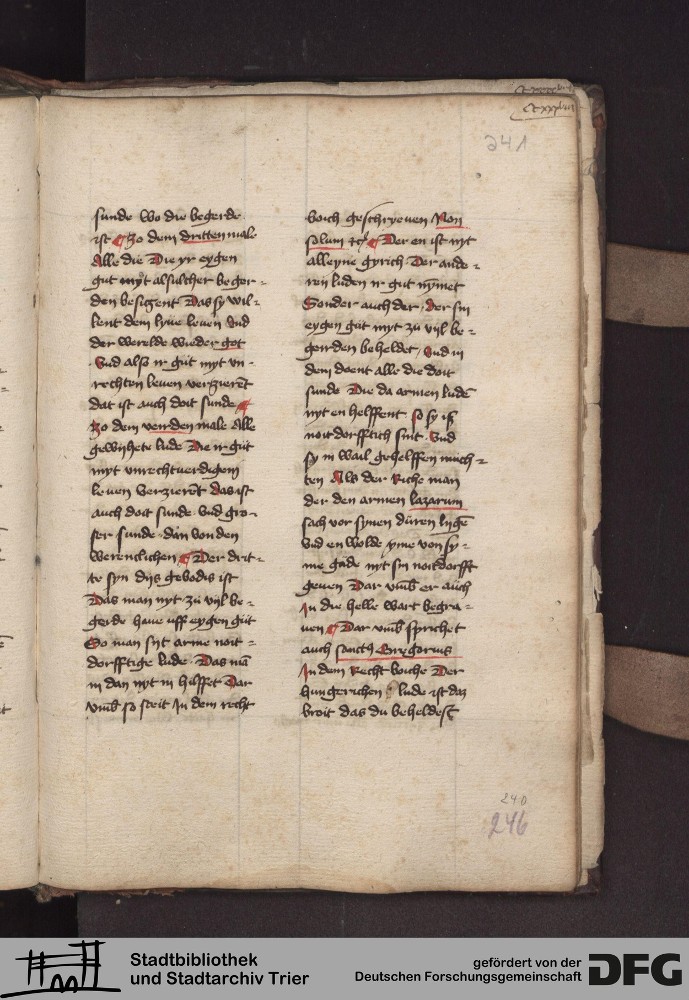 241
sunde wo die begerde
ist Zo dem dritten male
Alle die Die yr eygen
gut myt alsulcher beger-
den besigent Das sy wil-
lent dem lyue leuen Vnd
der werelde wieder got
Vnd alß ir gut myt vn-
rechten leuen verzierēt
dat ist auch doit sunde
Zo dem vierden male Alle
gewyhete lude Die ir gut
myt vnrechtuerdigem
leuen verzierēt das ist
auch doit sunde vnd gro-
ser sunde dan von den
werenclichen Der drit-
te syn dijs gebodis ist
Das man nyt zu vijl be-
gerde haue vff eygen gut
So man siht arme noit-
dorfftige lude Das mā
in dan nyt in hilffet Dar
vmb so steit In dem recht
boich geschryeuen Non
solum Der en ist nyt
alleyne gyrich Der ande-
ren luden ir gut nymet
Sonder auch der der sin
eygen gut myt zu vijl be-
gerden beheldet Vnd in
dem doent alle die doit
sunde Die da armen ludē
nyt en helffent so sy iß
noitdorfftich sint Vnd
sy in wail gehelffen moich-
ten Als der Riche man
der den armen lazarum
sach vor synen düren ligē
Vnd en wolde yme von sy-
me gude nyt sin noitdorfft
geuen Dar vmb er auch
In die helle wart begra-
uen Dar vmb sprichet
auch sanctus Gregorius
In dem Recht boiche Der
hungerichen lude ist daz
broit das du beheldest
240
246
Stadtbibliothek
und Stadtarchiv Trier
gefördert von der
Deutschen Forschungsgemeinschaft
DFG